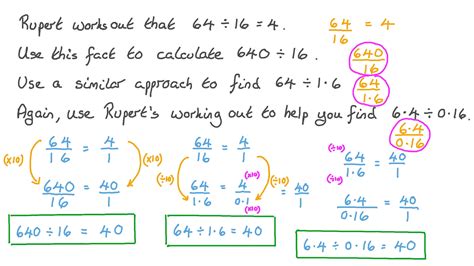 Rupert works out that 64 ÷ 16 = 4. 64/16 = 4
Use this fact to calculate 640 ÷ 16. 640/16
Use a similar approach to find 64 ÷ 1·6 64/1·6
Again, use Rupert's working out to help you find 6·4 ÷ 0·16. 6·4/0·16
64/16 = 4/1
(×10) (×10)
640/16 = 40/1
640 ÷ 16 = 40
64/16 = 4/1
(÷10) (÷10)
64/1·6 = 4/0·1 (×10) (×10) = 40/1
64 ÷ 1·6 = 40
64/1·6 = 40/1
(÷10) (÷10)
6·4/0·16 = 40/1
6·4 ÷ 0·16 = 40